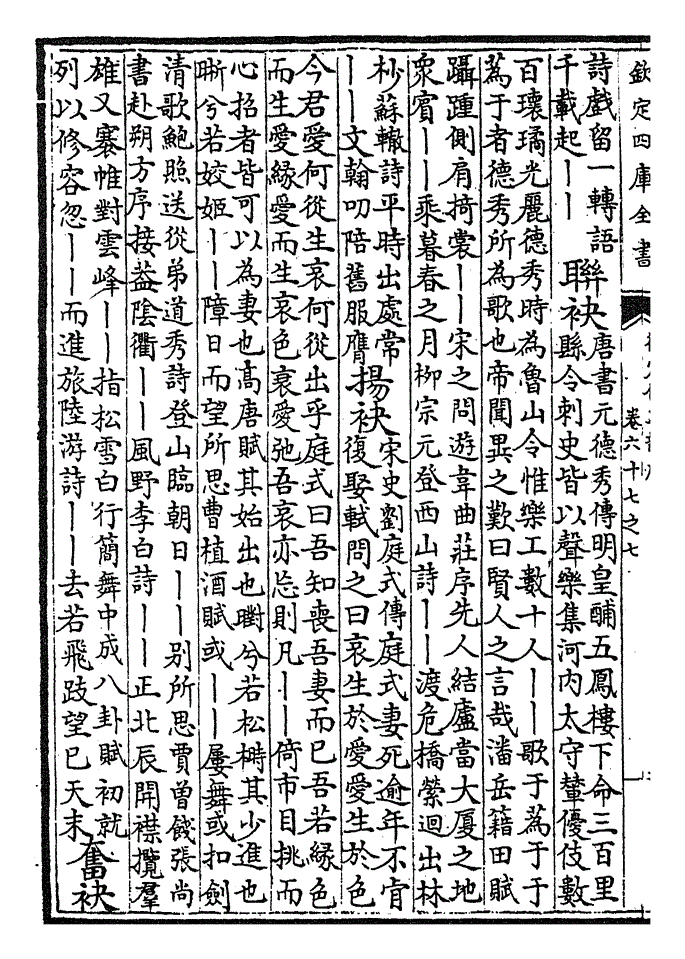 欽定四庫全書
卷六十七之七
詩戲留一轉語
千載起丨丨
聯袂
唐書元德秀傳明皇酺五鳳樓下命三百里
縣令刺史皆以聲樂集河内太守輦優伎數
百瓌璚光麗德秀時為魯山令惟樂工數十人丨丨歌于蒍于于
蒍于者德秀所為歌也帝聞異之歎曰賢人之言哉潘岳籍田賦
躡踵側肩掎裳丨丨宋之問遊韋曲莊序先人結廬當大厦之地
衆賓丨丨乘暮春之月柳宗元登西山詩丨丨渡危橋縈迴出林
杪蘇轍詩平時出處常
丨丨文翰叨陪舊服膺
揚袂
宋史劉庭式傳庭式妻死逾年不肯
復娶軾問之曰哀生於愛愛生於色
今君愛何從生哀何從出乎庭式曰吾知喪吾妻而已吾若緣色
而生愛緣愛而生哀色衰愛弛吾哀亦忘則凡丨丨倚市目挑而
心招者皆可以為妻也高唐賦其始出也㬣兮若松榯其少進也
晣兮若姣姬丨丨障日而望所思曹植酒賦或丨丨屢舞或扣劍
清歌鮑照送從弟道秀詩登山臨朝日丨丨别所思賈曾餞張尚
書赴朔方序接葢陰衢丨丨風野李白詩丨丨正北辰開襟攬羣
雄又褰帷對雲峰丨丨指松雪白行簡舞中成八卦賦初就
列以修容忽丨丨而進旅陸游詩丨丨去若飛跂望已天末
奮袂